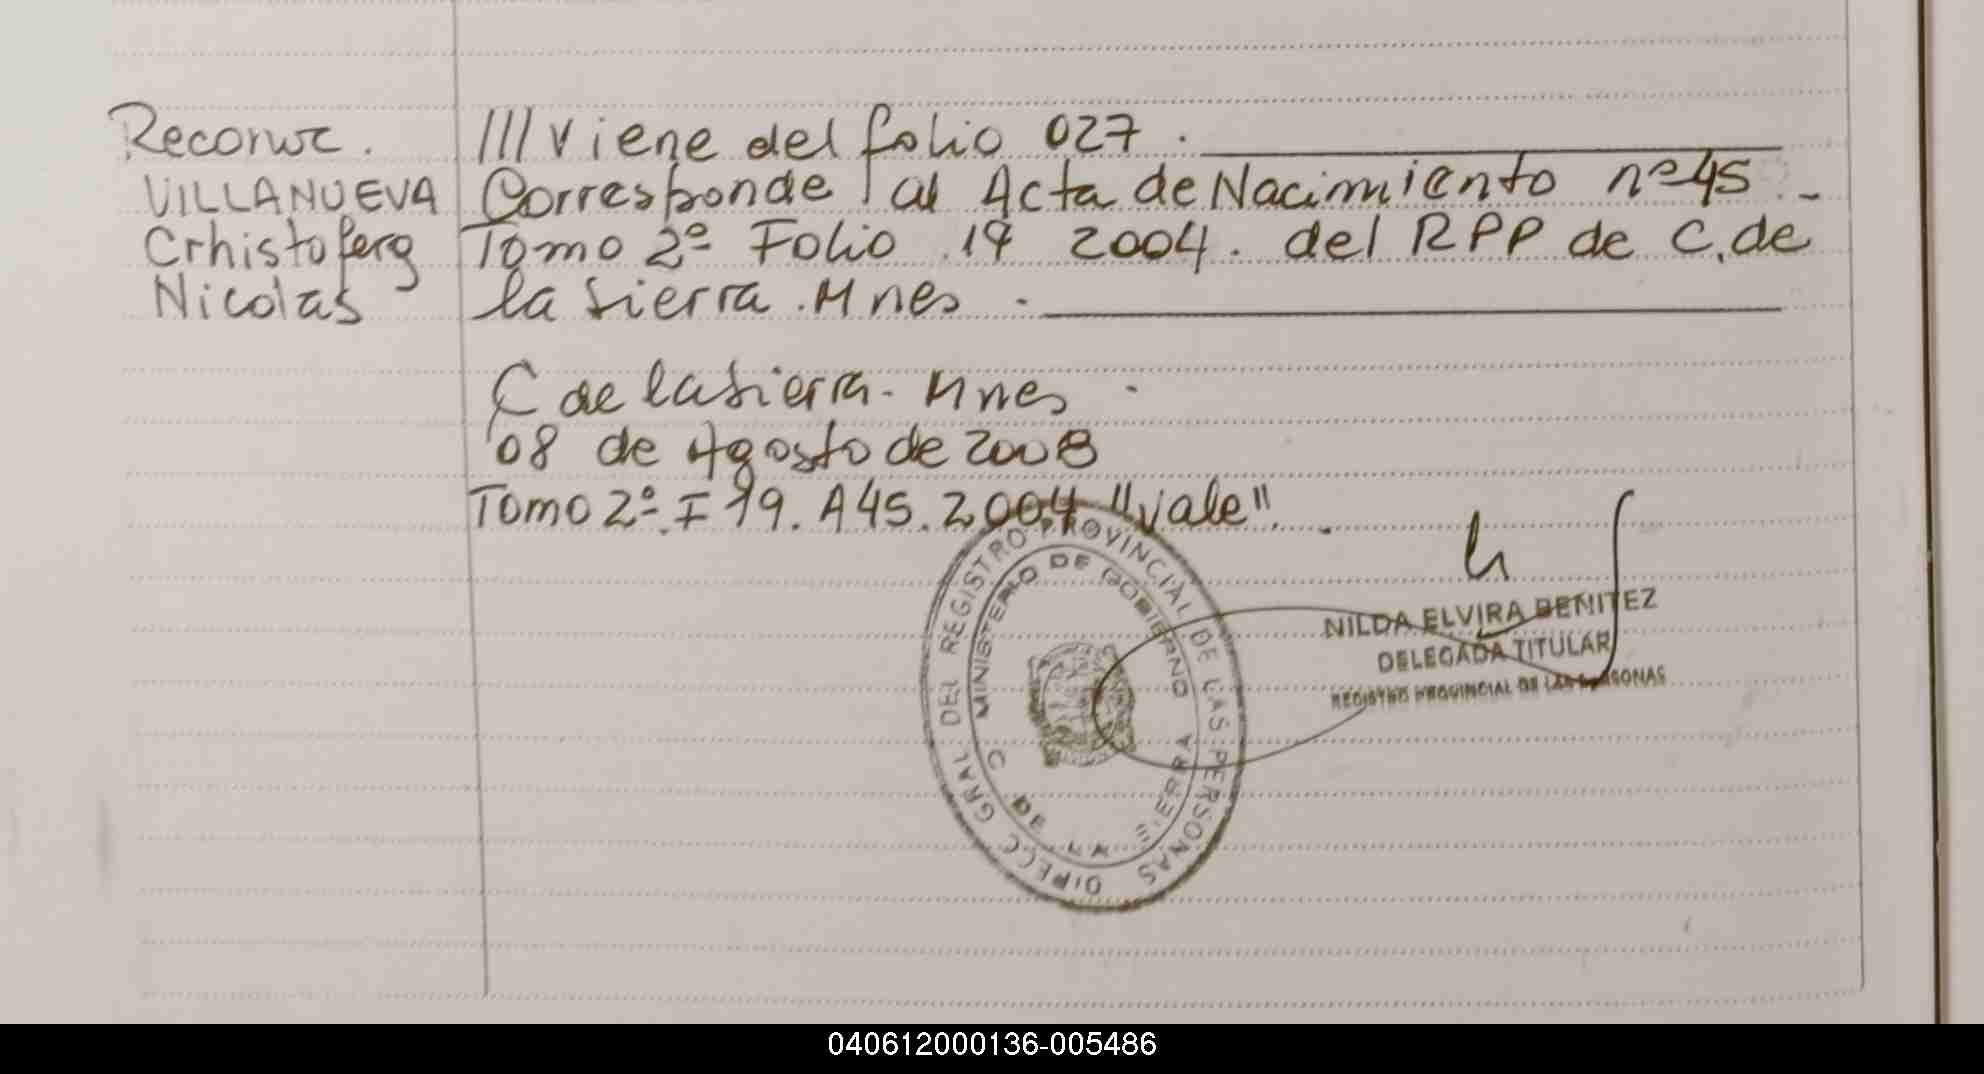 Reconoc.
VILLANUEVA
Crhistoferg
Nicolas
///Viene del folio 027.
Corresponde al Acta de Nacimiento nº 45.-
Tomo 2º Folio 19 2004. del RPP de C. de
la Sierra. Mnes.
C de la Sierra. Mnes.
08 de Agosto de 2008
Tomo 2º. F 19. A 45. 2004 "Vale".
DIRECC GRAL DEL REGISTRO PROVINCIAL DE LAS PERSONAS
MINISTERIO DE GOBIERNO
C DE LA SIERRA
NILDA ELVIRA BENITEZ
DELEGADA TITULAR
REGISTRO PROVINCIAL DE LAS PERSONAS
040612000136-005486